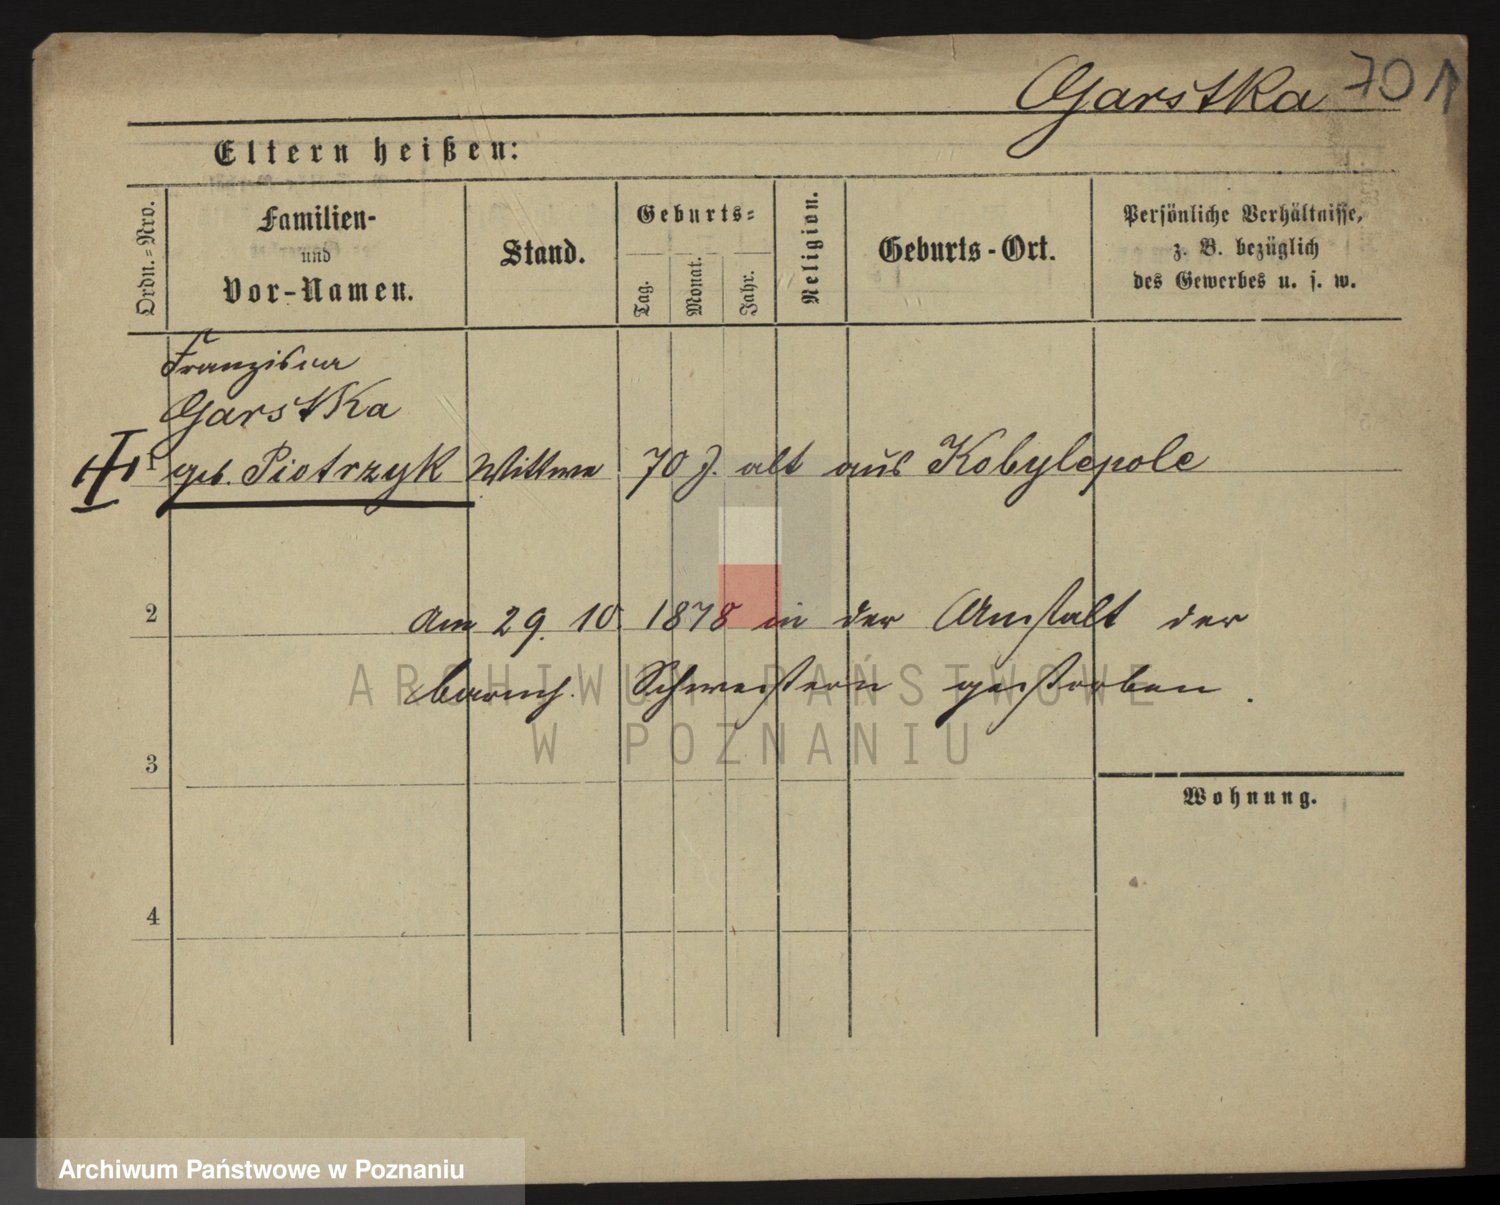 Garstka 701
Eltern heißen:
Ordn.-Nro.
Familien-
und
Vor-Namen.
Stand.
Geburts-
Tag.
Monat.
Jahr.
Religion.
Geburts-Ort.
Persönliche Verhältnisse,
z. B. bezüglich
des Gewerbes u. s. w.
Franzisca
Garstka
1 geb. Piotrzyk Wittwe 70 J. alt aus Kobylepole
2
Am 29. 10. 1878 in der Anstalt der
barmh. Schwestern gestorben.
3
Wohnung.
4
ARCHIWUM PAŃSTWOWE
W POZNANIU
Archiwum Państwowe w Poznaniu